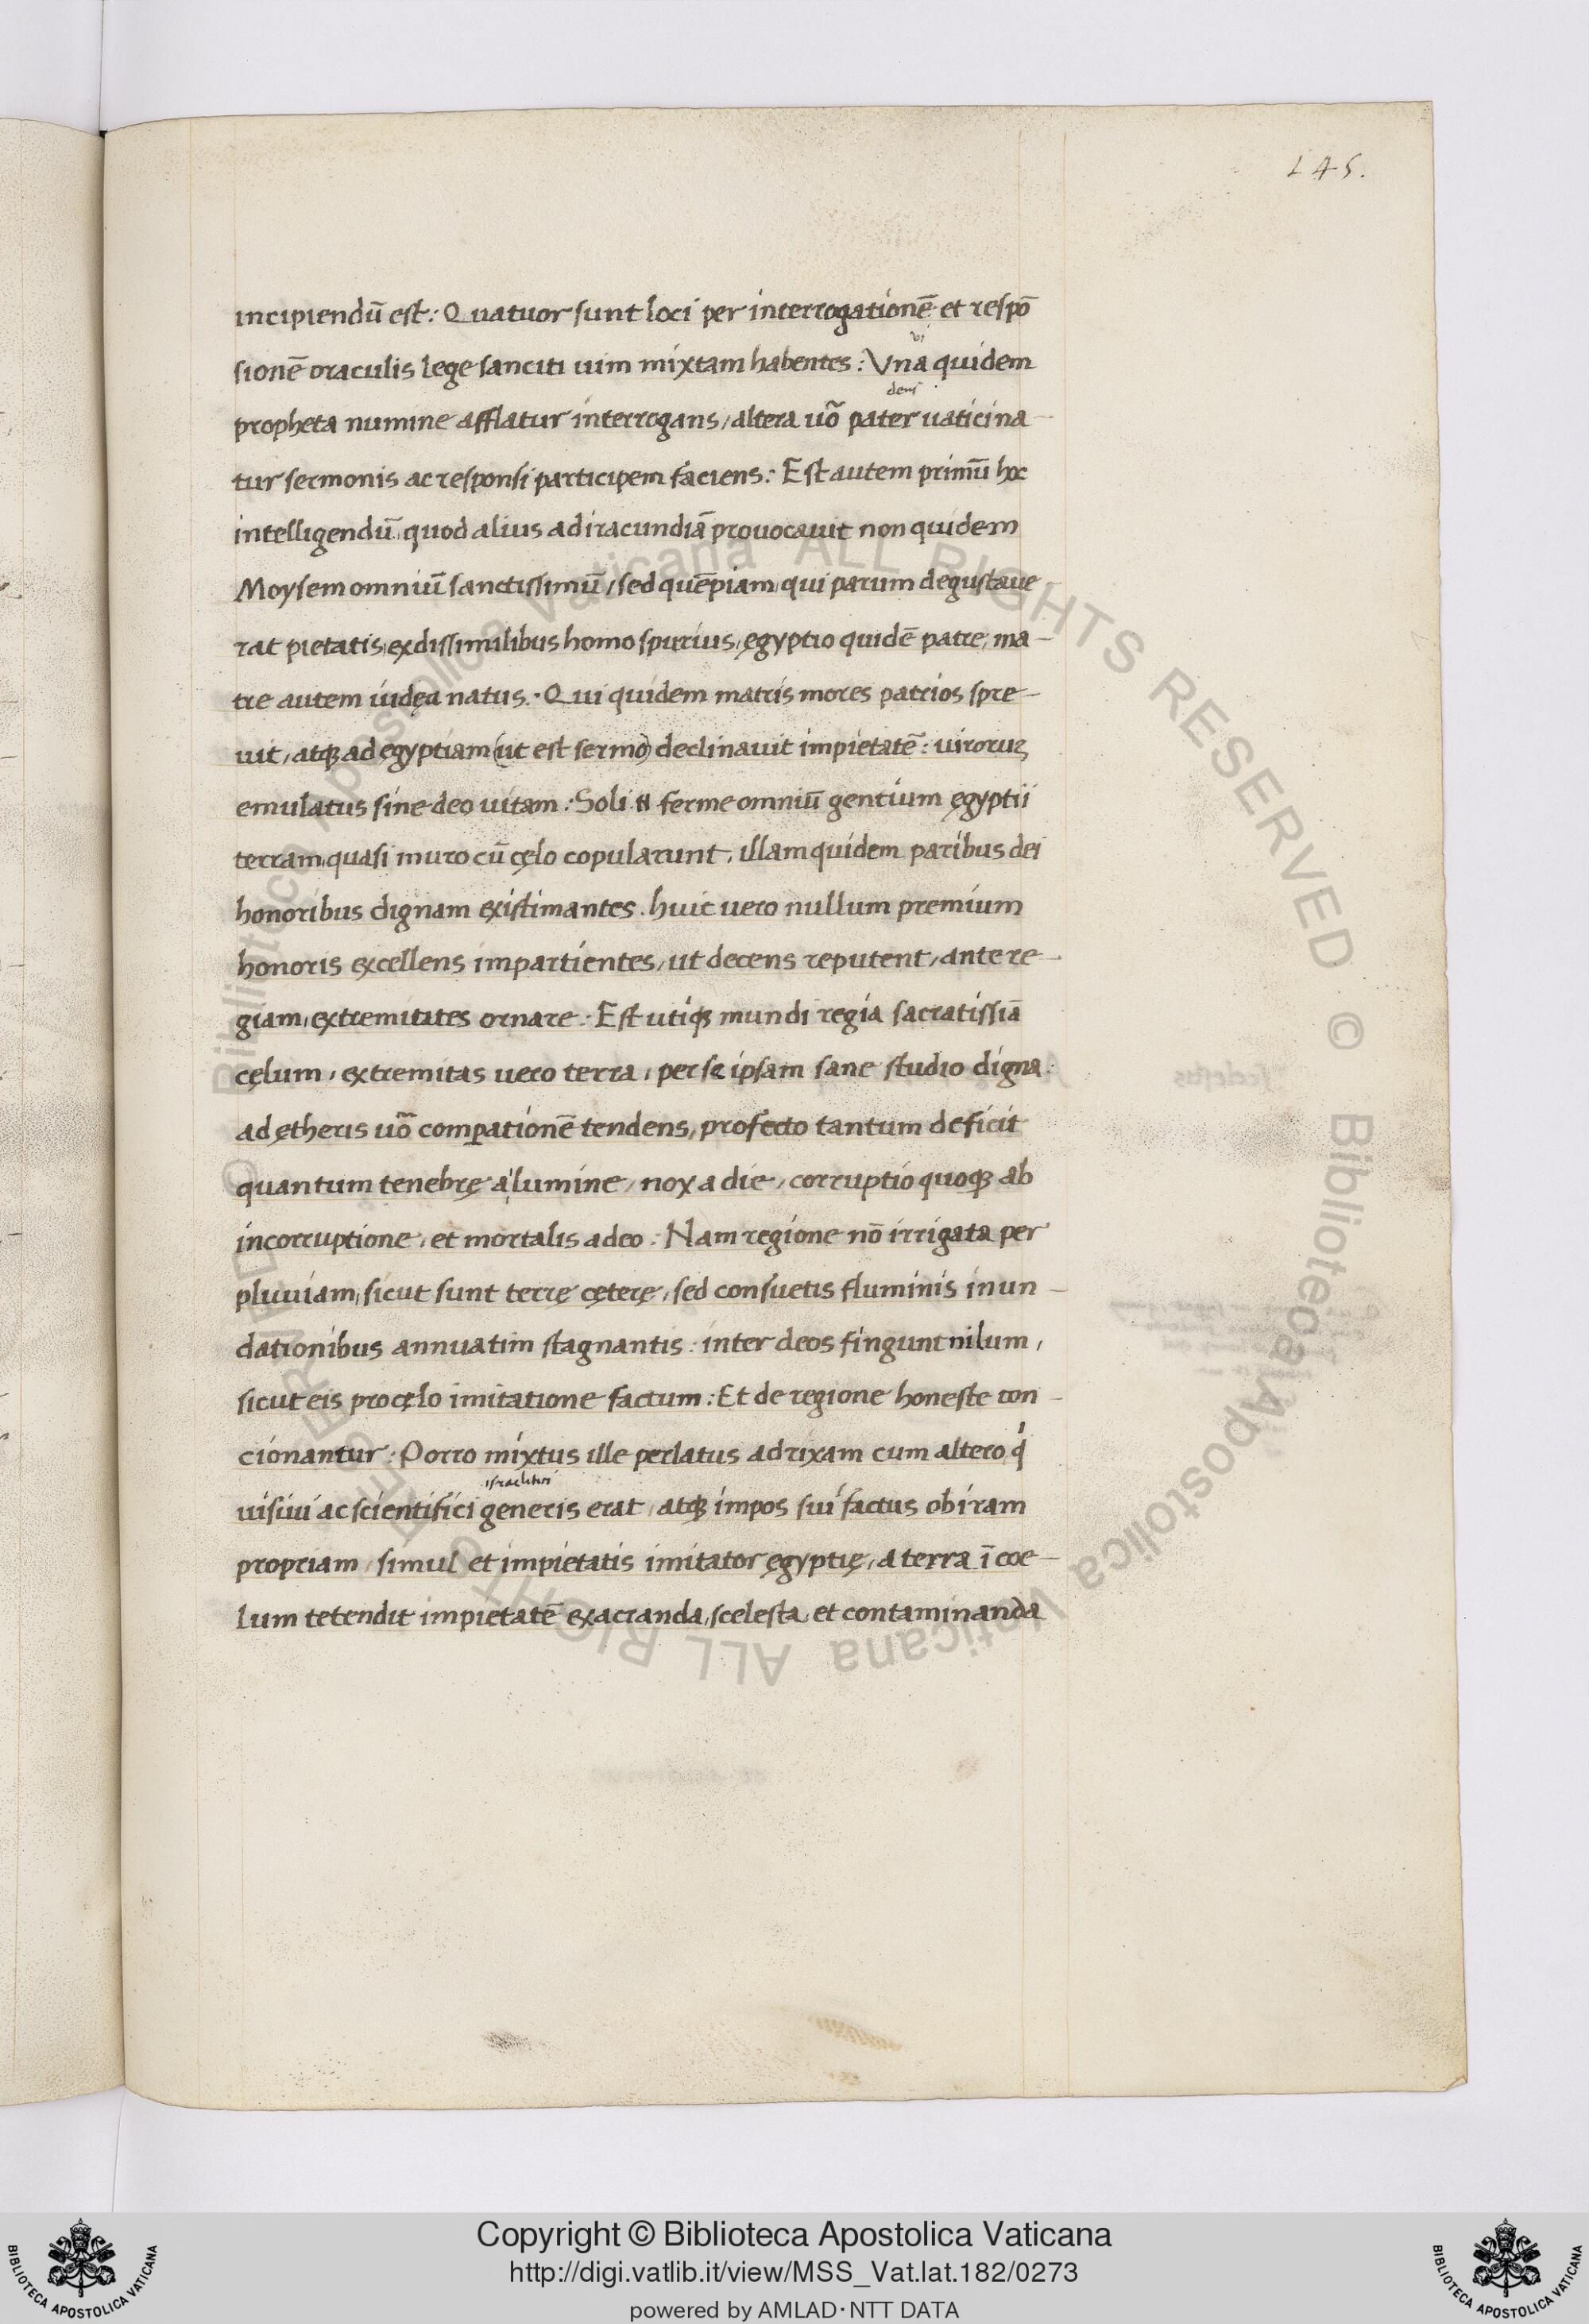 145.
incipiendū est: Quatuor sunt loci per interrogationē et respō
vi
sionē oraculis lege sanciti uim mixtam habentes: Vna quidem
deus
propheta numine afflatur interrogans, altera uō pater uaticina-
tur sermonis ac responsi participem faciens: Est autem primū hoc
intelligendū, quod alius ad iracundiā prouocauit non quidem
Moysem omniū sanctissimū, sed quēpiam, qui parum degustaue
rat pietatis, ex dissimilibus homo spurius, ęgyptio quidē patre, ma-
tre autem iudęa natus. Qui quidem matris mores patrios spre-
uit, atq; ad ęgyptiam (ut est sermo) declinauit impietatē: uiroruꝫ
emulatus sine deo uitam: Soli .n. ferme omniū gentium ęgyptii
terram, quasi muro cū cęlo copularunt, illam quidem paribus dei
honoribus dignam existimantes. huic uero nullum premium
honoris excellens impartientes, ut decens reputent, ante re-
giam, extremitates ornare: Est utiq; mundi regia sacratissīa
cęlum, extremitas uero terra, per se ipsam sane studio digna:
ad ętheris uō compationē tendens, profecto tantum deficit
quantum tenebrę a lumine, nox a die, corruptio quoq; ab
incorruptione, et mortalis a deo: Nam regione nō irrigata per
pluuiam, sicut sunt terrę cęterę, sed consuetis fluminis inun-
dationibus annuatim stagnantis: inter deos fingunt nilum,
sicut eis pro cęlo imitatione factum: Et de regione honeste con-
cionantur: Porro mixtus ille perlatus ad rixam cum altero, q
israelitici
uisiui ac scientifici generis erat, atq; impos sui factus ob iram
propriam, simul et impietatis imitator ęgyptię, a terra ī coe-
lum tetendit impietatē exacranda, scelesta, et contaminanda
© Biblioteca Apostolica Vaticana ALL RIGHTS RESERVED © Biblioteca Apostolica Vaticana ALL RIGHTS RESERVED
BIBLIOTECA APOSTOLICA VATICANA
Copyright © Biblioteca Apostolica Vaticana
http://digi.vatlib.it/view/MSS_Vat.lat.182/0273
powered by AMLAD·NTT DATA
BIBLIOTECA APOSTOLICA VATICANA